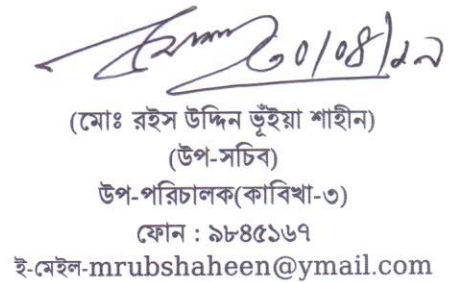 ৩০/০৪/১৯
(মোঃ রইস উদ্দিন ভূঁইয়া শাহীন)
(উপ-সচিব)
উপ-পরিচালক(কাবিখা-৩)
ফোন : ৯৮৪৫১৬৭
ই-মেইল-mrubshaheen@ymail.com